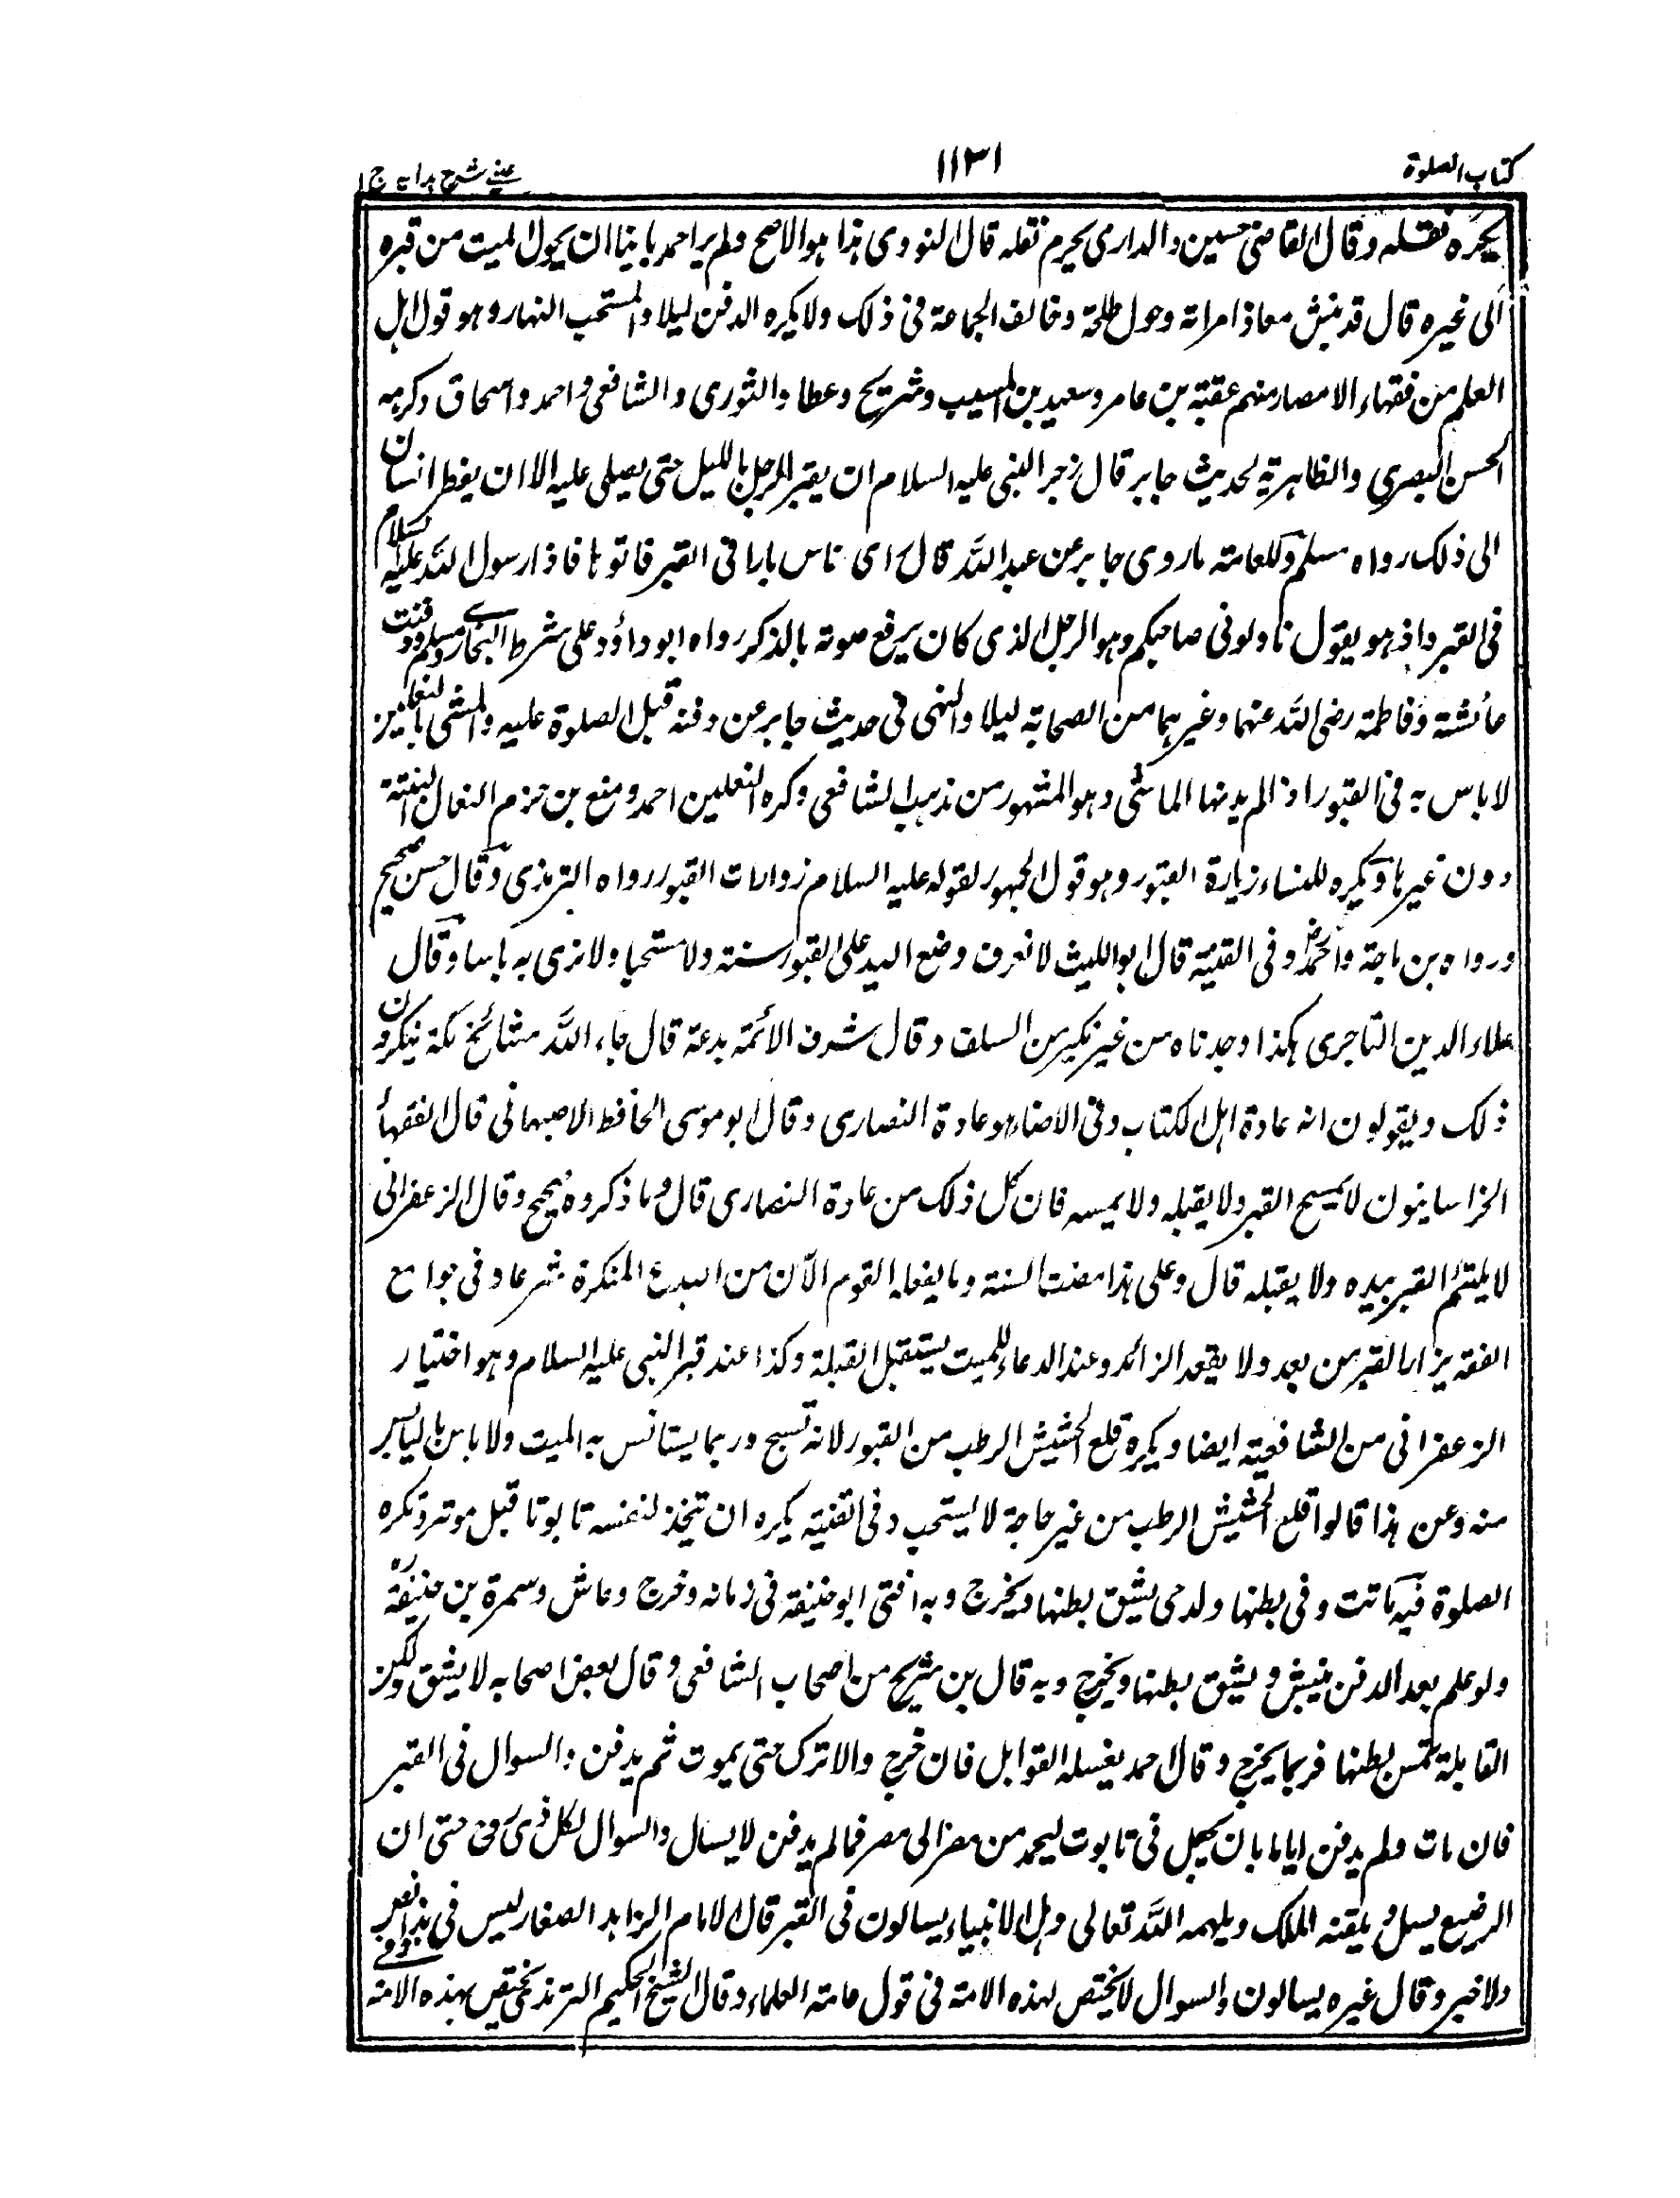 كتاب الصلوة
١١٣١
عيني شرح هدايه ج ١
يكره نقله وقال القاضي حسين والدارمي يحرم نقله قال النووي هذا هو الاصح ولم ير احمد باسا ان يحول الميت من قبره
الى غيره قال قد نبش معاذ امراته وحول طلحة وخالف الجماعة في ذلك ولا يكره الدفن ليلا والمستحب النهار وهو قول اهل
العلم من فقهاء الامصار منهم عقبة بن عامر وسعيد بن المسيب وشريح وعطا والثوري والشافعي واحمد واسحاق وكرهه
الحسن البصري والظاهرية لحديث جابر قال زجر النبي عليه السلام ان يقبر الرجل بالليل حتى يصلى عليه الا ان يضطر انسان
الى ذلك رواه مسلم وللعامة ما روى جابر عن عبد الله قال راى ناس نارا في القبر فاتوها فاذا رسول الله عليه السلام
في القبر واذ هو يقول ناولوني صاحبكم وهو الرجل الذي كان يرفع صوته بالذكر رواه ابو داؤد على شرط البخاري ومسلم ودفنت
عائشة وفاطمة رضى الله عنهما وغيرهما من الصحابة ليلا والنهى في حديث جابر عن دفنه قبل الصلوة عليه والمشى بالنعلين
لا باس به في القبور اذ الم يدنها الماشى وهو المشهور من مذهب الشافعي وكره النعلين احمد ومنع بن حزم النعال السبتية
دون غيرها ويكره للنساء زيارة القبور وهو قول الجمهور لقوله عليه السلام زوارات القبور رواه الترمذي وقال حسن صحيح
ورواه بن ماجة واحمد وفي القنية قال ابو الليث لا نعرف وضع اليد على القبور سنة ولا مستحبا ولا نرى به باسا وقال
علاء الدين التاجري هكذا وجدناه من غير نكير من السلف وقال شرف الائمة بدعة قال جاء الله مشائخ مكة ينكرون
ذلك ويقولون انه عادة اهل الكتاب وفي الاحياء هو عادة النصارى وقال ابو موسى الحافظ الاصبهاني قال الفقهاء
الخراسانيون لا يمسح القبر ولا يقبله ولا يمسه فان كل ذلك من عادة النصارى قال وما ذكروه صحيح وقال الزعفراني
لا يلتئم القبر بيده ولا يقبله قال وعلى هذا مضت السنة وما يفعله القوم الآن من البدع المنكرة شرعا وفي جوامع
الفقه يزار القبر من بعد ولا يقعد الزائر وعند الدعاء للميت يستقبل القبلة وكذا عند قبر النبي عليه السلام وهو اختيار
الزعفراني من الشافعية ايضا ويكره قلع الحشيش الرطب من القبور لانه تسبح وربما يستانس به الميت ولا باس باليابس
منه وعن هذا قالوا قلع الحشيش الرطب من غير حاجة لا يستحب وفي القنية يكره ان تتخذ لنفسه تابوتا قبل موته وتكره
الصلوة فيه ماتت وفي بطنها ولد حى يشق بطنها ويخرج وبه افتى ابو حنيفة في زمانه وخرج وعاش وسمرة بن حنيفة
ولو علم بعد الدفن ينبش ويشق بطنها ويخرج وبه قال بن شريح من اصحاب الشافعي وقال بعض اصحابه لا يشق ولكن
القابلة تمس بطنها فربما يخرج وقال احمد يغسله القوابل فان خرج والا ترك حتى يموت ثم يدفن والسوال في القبر
فان مات ولم يدفن اياما بان يجعل في تابوت ليحمد من مصر الى مصر فمالم يدفن لا يسال والسوال لكل ذى روح حتى ان
الرضيع يسل ويلقنه الملك ويلهمه الله تعالى وهل الانبياء يسالون في القبر قال الامام الزاهد الصفار ليس في هذا نص
ولا خبر وقال غيره يسالون والسوال لا يختص لهذه الامة في قول عامة العلماء وقال الشيخ الحكيم الترمذي يختص بهذه الامة